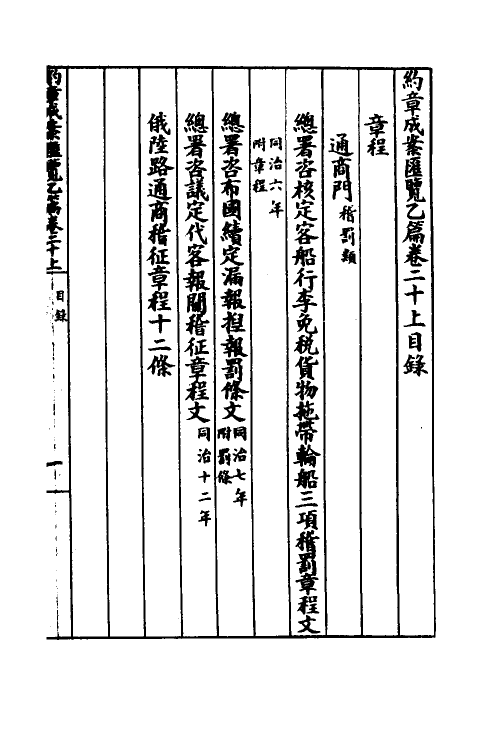 約章成案匯覽乙篇卷二十上目錄
章程
通商門稽罰類
總署咨核定客船行李免稅貨物拖帶輪船三項稽罰章程文
同治六年
附章程
總署咨布國續定漏報捏報罰條文同治七年
附罰條
總署咨議定代客報關稽征章程文同治十二年
俄陸路通商稽征章程十二條
約章成案匯覽乙篇卷二十上
目錄
一